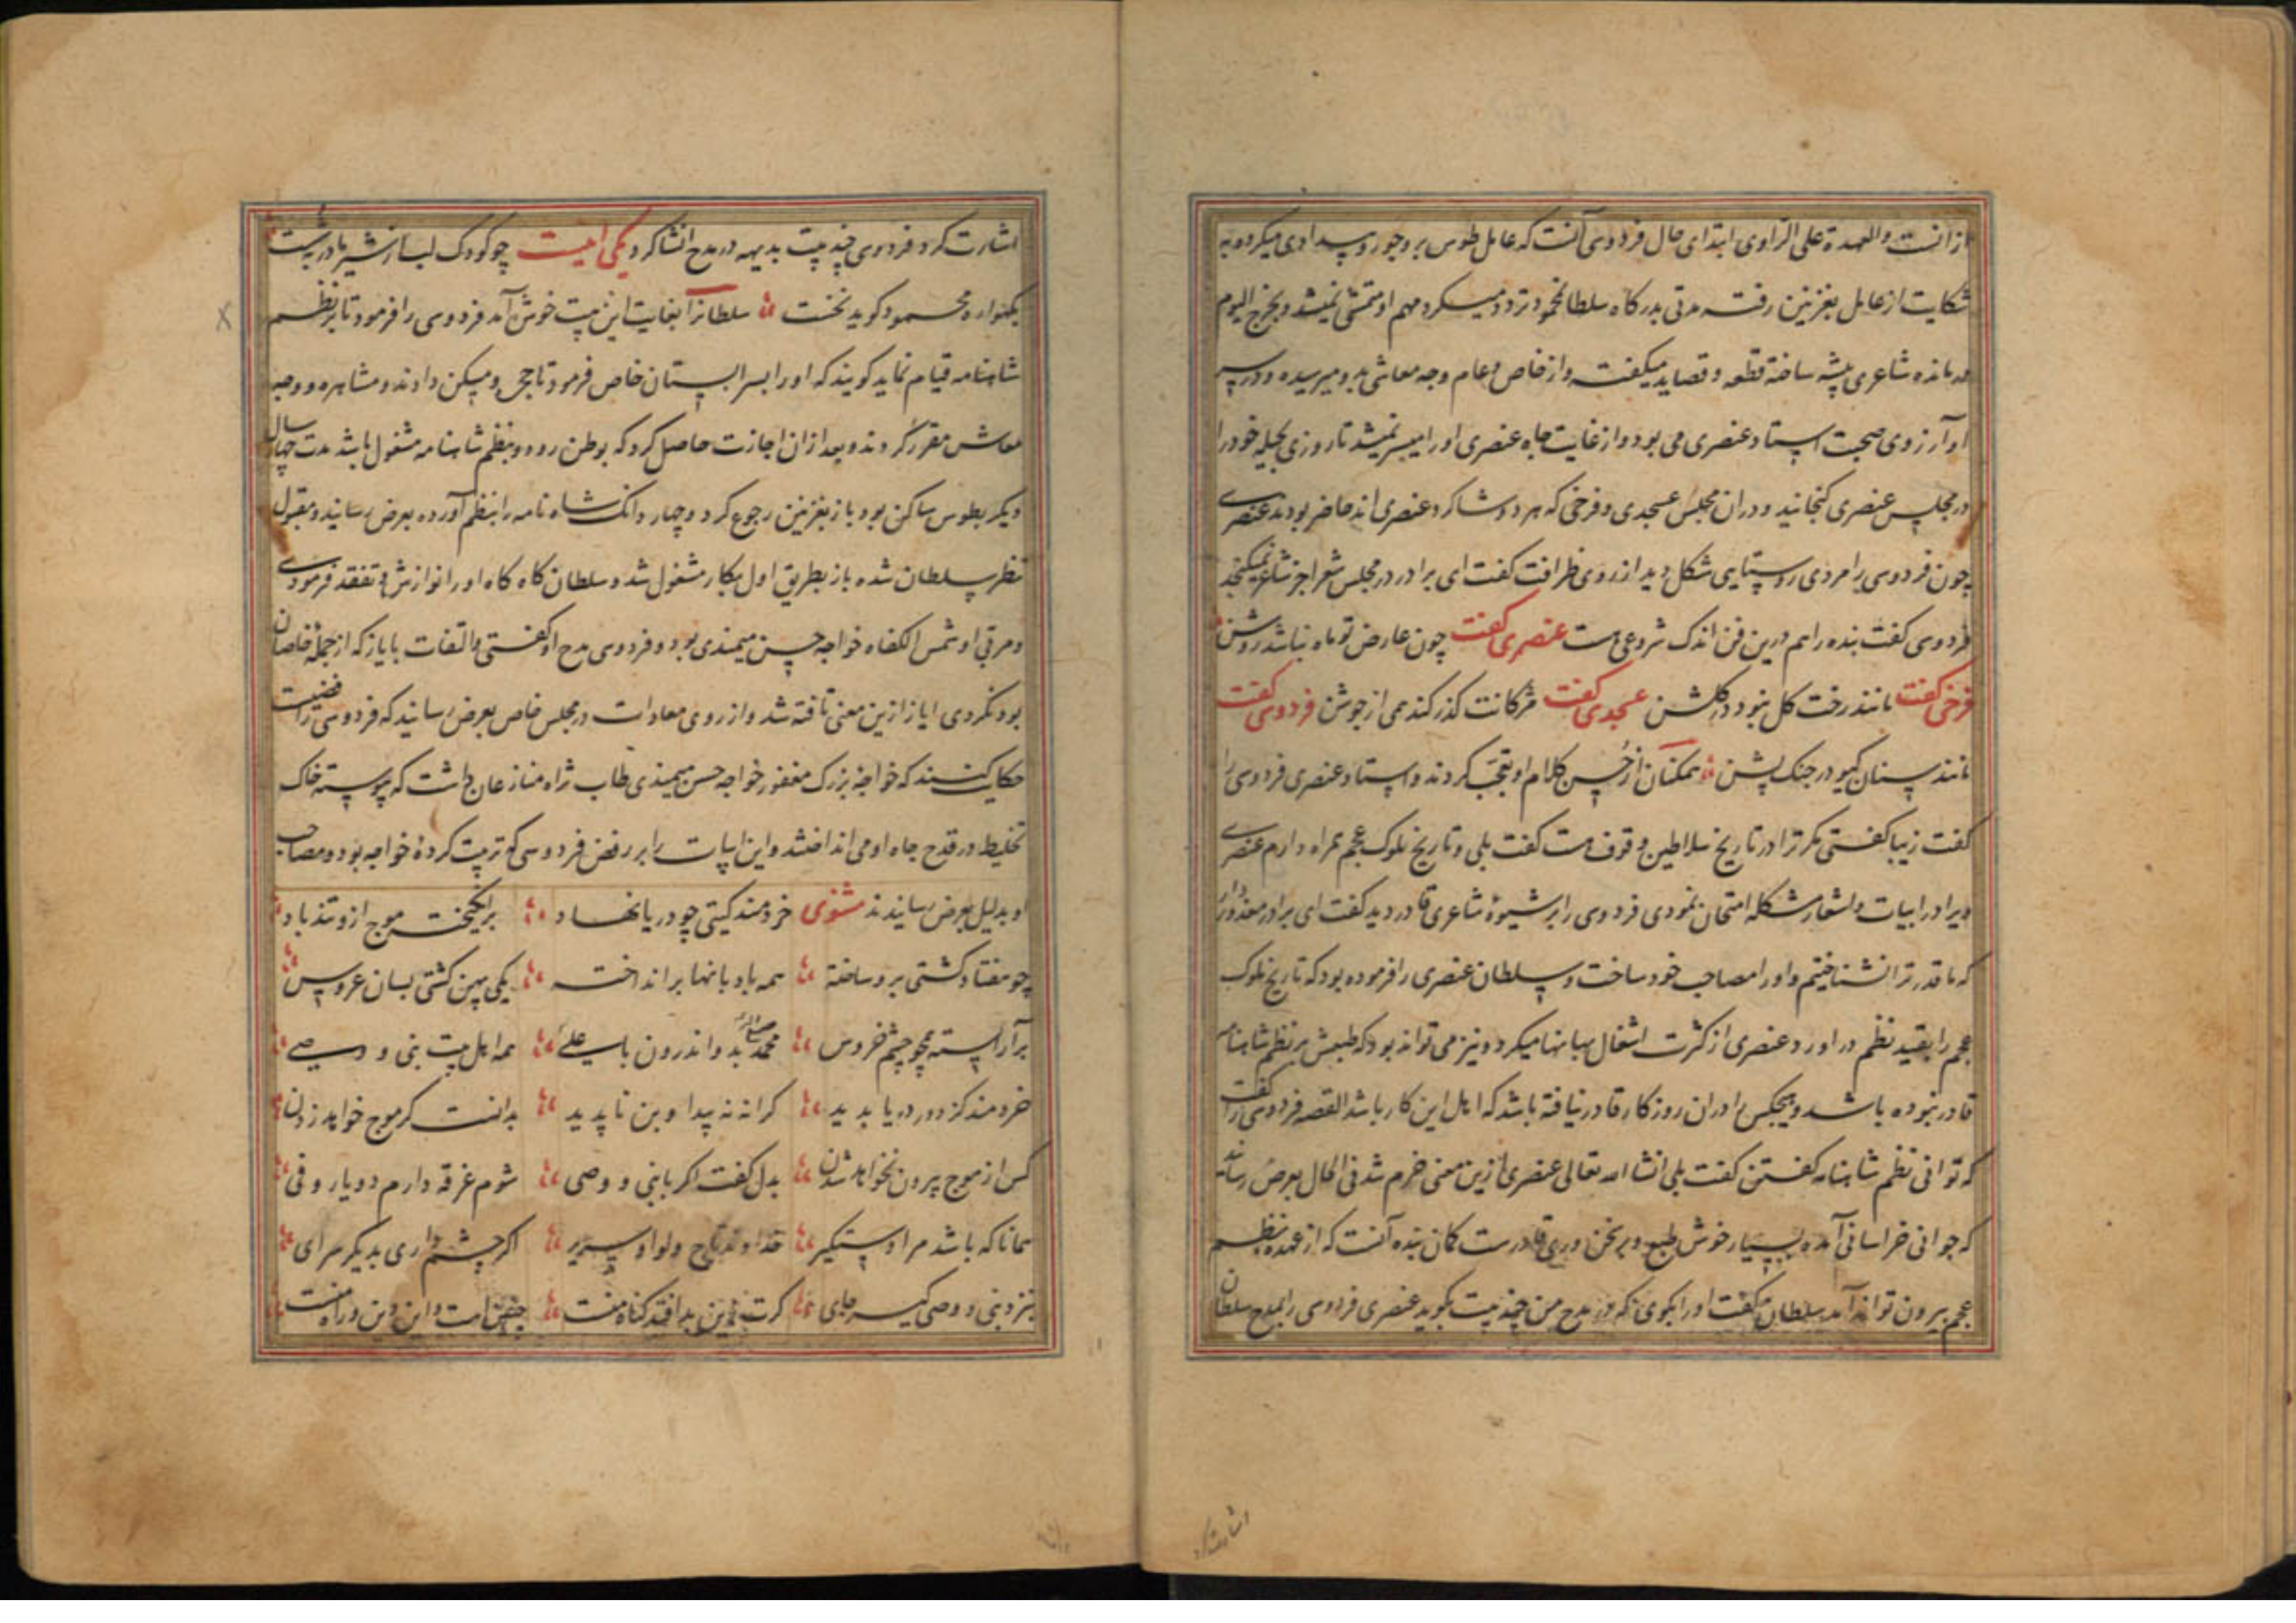 از آنست والعهدة علی الراوی ابتدای حال فردوسی آنست که عامل طوس برو جور و بیدادی میکرد وبه
شکایت از عامل بغزنین رفت مدتی بدرگاه سلطان محمود تردد میکرد و مهم او متمشی نمیشد و بخرج الیوم
درمانده شاعری پیشه ساخته قطعه و قصاید میکفت و از خاص و عام وجه معاشی بدو میرسید و در سر
او آرزوی صحبت استاد عنصری می بود و از غایت جاه عنصری او را میسر نمیشد تا روزی بحیله خود را
در مجلس عنصری کنجانید و دران مجلس عسجدی و فرخی که هر دو شاکرد عنصری اند حاضر بودند عنصری
چون فردوسی را مردی روستایی شکل دید از روی ظرافت کفت ای برادر در مجلس شعرا جز شاعر نمیکنجد
فردوسی کفت بنده را هم درین فن اندک شروعی هست عنصری کفت چون عارض تو ماه نباشد روشن
فرخی کفت مانند رخت کل نبود در کلشن عسجدی کفت مژکانت کذر کند همی از جوشن فردوسی کفت
مانند سنان کیو در جنک پشن همکنان از حسن کلام او تعجب کردند و استاد عنصری فردوسی را
کفت زیبا کفتی مکر ترا در تاریخ سلاطین وقوف هست کفت بلی و تاریخ ملوک عجم همراه دارم عنصری
ویرا در ابیات و اشعار مشکله امتحان نمودی فردوسی را بر شیوهٔ شاعری قادر دید کفت ای برادر معذور دار
که ما قدر ترا نشناختیم و او را مصاحب خود ساخت و سلطان عنصری را فرموده بود که تاریخ ملوک
عجم را بقید نظم در اورد و عنصری از کثرت اشغال بهانها میکرد و نیز می تواند بود که طبعش بر نظم شاهنامه
قادر نبوده باشد و هیچکس را دران روزکار قادر نیافته باشد که اهل این کار باشد القصه فردوسی را کفت
که توانی نظم شاهنامه کفتن کفت بلی انشا الله تعالی عنصری ازین معنی خرم شد فی الحال بعرض رساند
که جوانی خراسانی آمده بسیار خوش طبع و بر سخن وری قادرست کمان بنده آنست که از عهده نظم
عجم بیرون تواند آمد سلطان کفت او را بکوی که در مدح من چند بیت بکوید عنصری فردوسی را بمدح سلطان
اشارت کرد فردوسی چند بیت بدیهه در مدح انشا کرد یکی اینست چو کودک لب از شیر مادر بشست
بکهواره محمود کوید نخست سلطانرا بغایت این بیت خوش آمد فردوسی را فرمود تا بر نظم
شاهنامه قیام نماید کویند که او را بسرا بستان خاص فرمود تا حجره و مسکن دادند و مشاهره و وجه
معاش مقرر کردند و بعد ازان اجازت حاصل کرد که بوطن رود و بنظم شاهنامه مشغول باشد مدت چهار سال
دیکر بطوس ساکن بود باز بغزنین رجوع کرد و چهار دانک شاه نامه را بنظم آورده بعرض رسانید و مقبول
نظر سلطان شده باز بطریق اول بکار مشغول شد و سلطان کاه کاه او را نوازش و تفقد فرمودی
و مربی او شمس الکفاه خواجه حسن میمندی بود و فردوسی مدح او کفتی و التفات بایاز که از جملهٔ خاصان
بود نکردی ایاز ازین معنی تافته شد و از روی معادات در مجلس خاص بعرض رسانید که فردوسی رافضیست
حکایت کنند که خواجه بزرک مغفور خواجه حسن میمندی طاب ثراه منازعان داشت که پیوسته خاک
تخلیط در قدح جاه او می انداختند و این ابیات را بر رفض فردوسی که تربیت کردهٔ خواجه بود و مصاحب
او بدلیل بعرض رسانیدند مثنوی خردمند کیتی چو دریا نهاد برانکیخت موج ازو تند باد
چو هفتاد کشتی برو ساخته همه بادبانها بر انداخته یکی پهن کشتی بسان عروس
بر آراسته همچو چشم خروس محمد صلی الله بدو اندرون با علی همه اهل بیت نبی و وصی
خردمند کز دور دریا بدید کرانه نه پیدا و بن ناپدید بدانست کو موج خواهد زدن
کس از موج بیرون نخواهد شدن بدل کفت اکر با نبی و وصی شوم غرقه دارم دو یار وفی
همانا که باشد مرا دستکیر خداوند تاج و لوا و سریر اکر چشم داری بدیکر سرای
بنزد نبی و وصی کیر جای کرت زین بد افتد کناه منست چنینست و این دین و راه منست